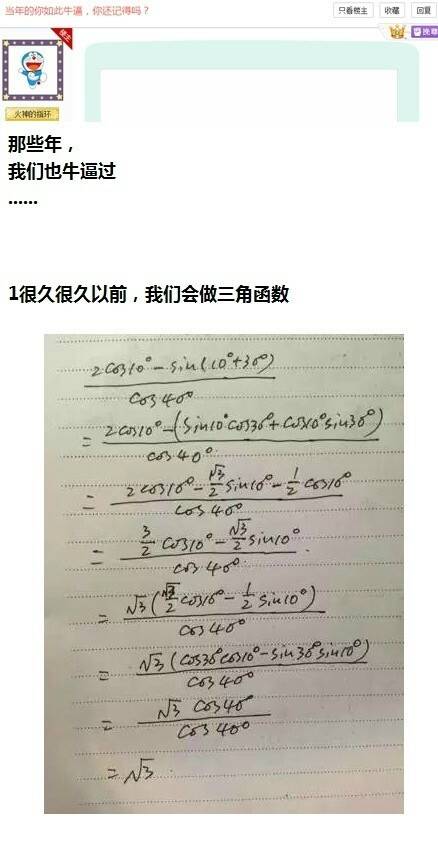 当年的你如此牛逼，你还记得吗？
只看楼主 收藏 回复
楼主
火神的指环
那些年，
我们也牛逼过
......
1很久很久以前，我们会做三角函数
2cos10°-sin(10°+30°)
cos40°
= 2cos10°-(sin10°cos30°+cos10°sin30°)
cos40°
= 2cos10°-√3/2 sin10°-1/2 cos10°
cos40°
= 3/2 cos10°-√3/2 sin10°
cos40°
= √3(√3/2 cos10°-1/2 sin10°)
cos40°
= √3(cos30°cos10°-sin30°sin10°)
cos40°
= √3 cos40°
cos40°
=√3